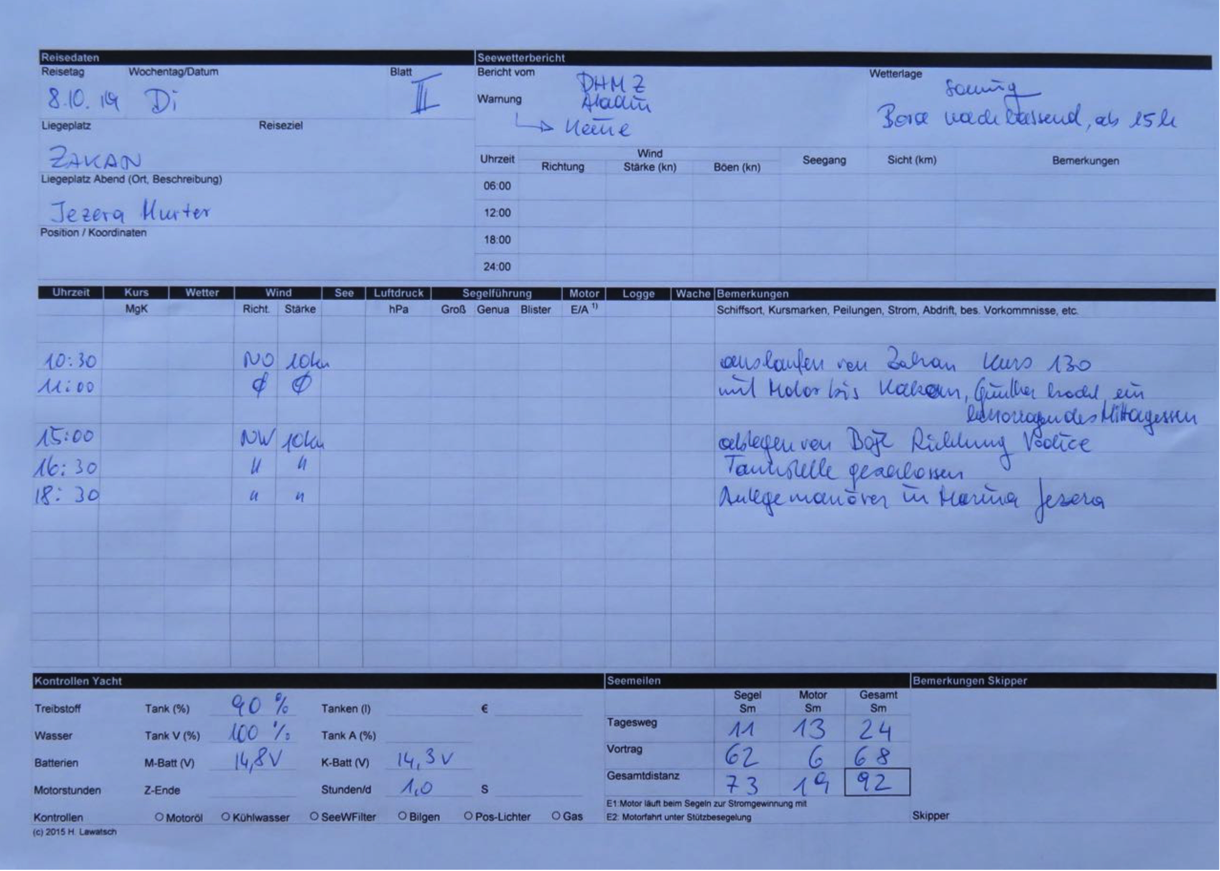 Reisedaten
Reisetag Wochentag/Datum Blatt
8.10.19 Di II
Liegeplatz Reiseziel
ZAKAN
Liegeplatz Abend (Ort, Beschreibung)
Jezera Murter
Position / Koordinaten
Seewetterbericht
Bericht vom DHMZ
Aladin
Warnung
Keine
Wetterlage sonnig
Bora nachlassend, ab 15h
Uhrzeit Wind Seegang Sicht (km) Bemerkungen
Richtung Stärke (kn) Böen (kn)
06:00
12:00
18:00
24:00
Uhrzeit Kurs Wetter Wind See Luftdruck Segelführung Motor Logge Wache Bemerkungen
MgK Richt. Stärke hPa Groß Genua Blister E/A 1) Schiffsort, Kursmarken, Peilungen, Strom, Abdrift, bes. Vorkommnisse, etc.
10:30 NO 10kn auslaufen von Zakan Kurs 130
11:00 Ø Ø mit Motor bis Kakan, Günther kocht ein
hervorragendes Mittagessen
15:00 NW 10kn ablegen von Boje Richtung Vodice
16:30 " " Tankstelle geschlossen
18:30 " " Anlegemanöver in Marina Jezera
Kontrollen Yacht
Treibstoff Tank (%) 90 % Tanken (l) €
Wasser Tank V (%) 100 % Tank A (%)
Batterien M-Batt (V) 14,8V K-Batt (V) 14,3V
Motorstunden Z-Ende Stunden/d 1,0 S
Kontrollen Motoröl Kühlwasser SeeWFilter Bilgen Pos-Lichter Gas
(c) 2015 H. Lewatsch
Seemeilen
Segel Motor Gesamt
Sm Sm Sm
Tagesweg 11 13 24
Vortrag 62 6 68
Gesamtdistanz 73 19 92
E1:Motor läuft beim Segeln zur Stromgewinnung mit
E2: Motorfahrt unter Stützbesegelung
Bemerkungen Skipper
Skipper